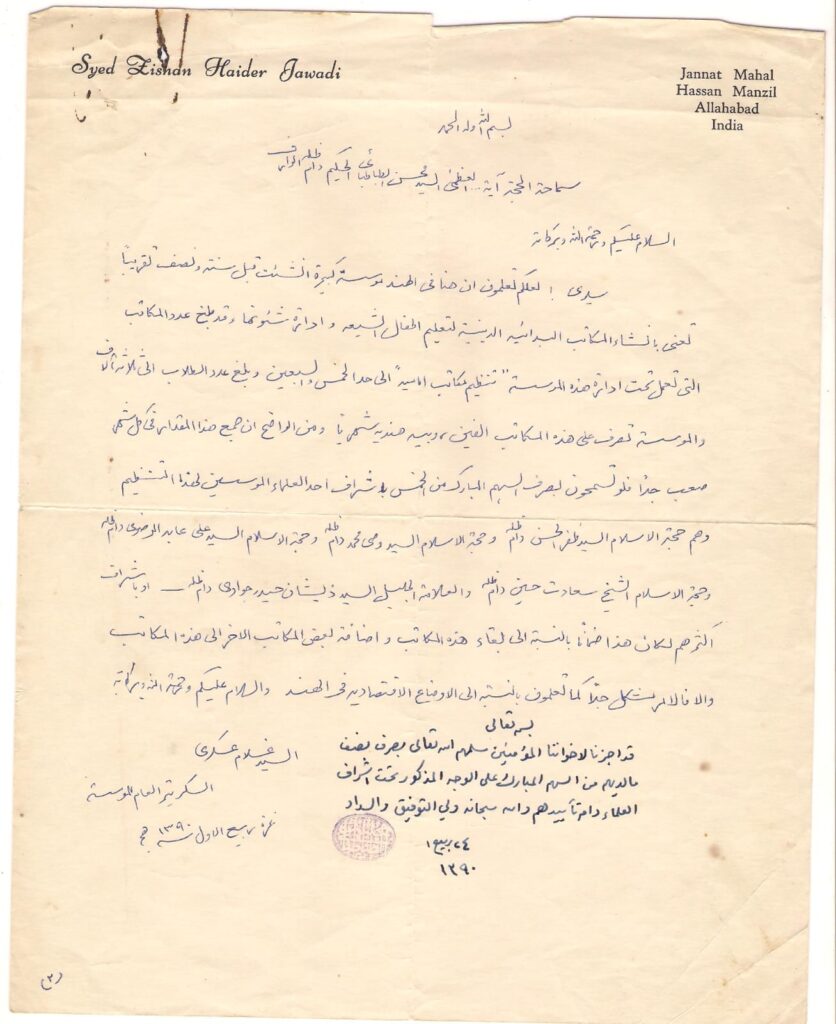 Syed Zishan Haider Jawadi
Jannat Mahal
Hassan Manzil
Allahabad
India
بسم الله وله الحمد
سماحة الحجة آية ... العظمى السيد محسن الطباطبائي الحكيم دام ظله الوارف
السلام عليكم ورحمة الله وبركاته
سيدي ! لعلكم تعلمون ان هنا في الهند موسسة كبيرة انشئت قبل سنة ونصف تقريباً
تعنى بانشاء المكاتب البدائيه الدينية لتعليم اطفال الشيعه و ادارة شئونها وقد بلغ عدد المكاتب
التي تعمل تحت ادارة هذه الموسسة "تنظيم مكاتب امامية" الى حد الخمس والسبعين وبلغ عدد الطلاب الى ثلاثة آلاف
والموسسة تصرف على هذه المكاتب الفين روبيه هنديه شهرياً ومن الواضح ان جمع هذا المقدار في كل شهر
صعب جداً فلو تسمحون بصرف السهم المبارك من الخمس باشراف احد العلماء الموسسين لهذا التنظيم
وهم حجة الاسلام السيد ظفر الحسن دام ظله وحجة الاسلام السيد وصي محمد دام ظله وحجة الاسلام السيد علي عابد الرضوي دام ظله
وحجة الاسلام الشيخ سعادت حسين دام ظله والعلامة الجليل السيد ذيشان حيدر جوادي دام ظله او باشراف
اكثرهم لكان هذا ضماناً بالنسبة الى بقاء هذه المكاتب و اضافة بعض المكاتب الاخر الى هذه المكاتب
والا فالامر مشكل جداً كما تعلمون بالنسبة الى الاوضاع الاقتصاديه في الهند والسلام عليكم ورحمة الله وبركاته
السيد غلام عسكري
السكرتير العام للموسسة
غرة ربيع الاول سنه ١٣٩٠ هج
بسمه تعالى
قد اجزنا لاخواننا المؤمنين سلمهم الله تعالى بصرف نصف
مالديهم من السهم المبارك على الوجه المذكور تحت اشراف
العلماء دام تأييدهم والله سبحانه ولي التوفيق والسداد
٢٤ ربيع ١
١٣٩٠
(٢)